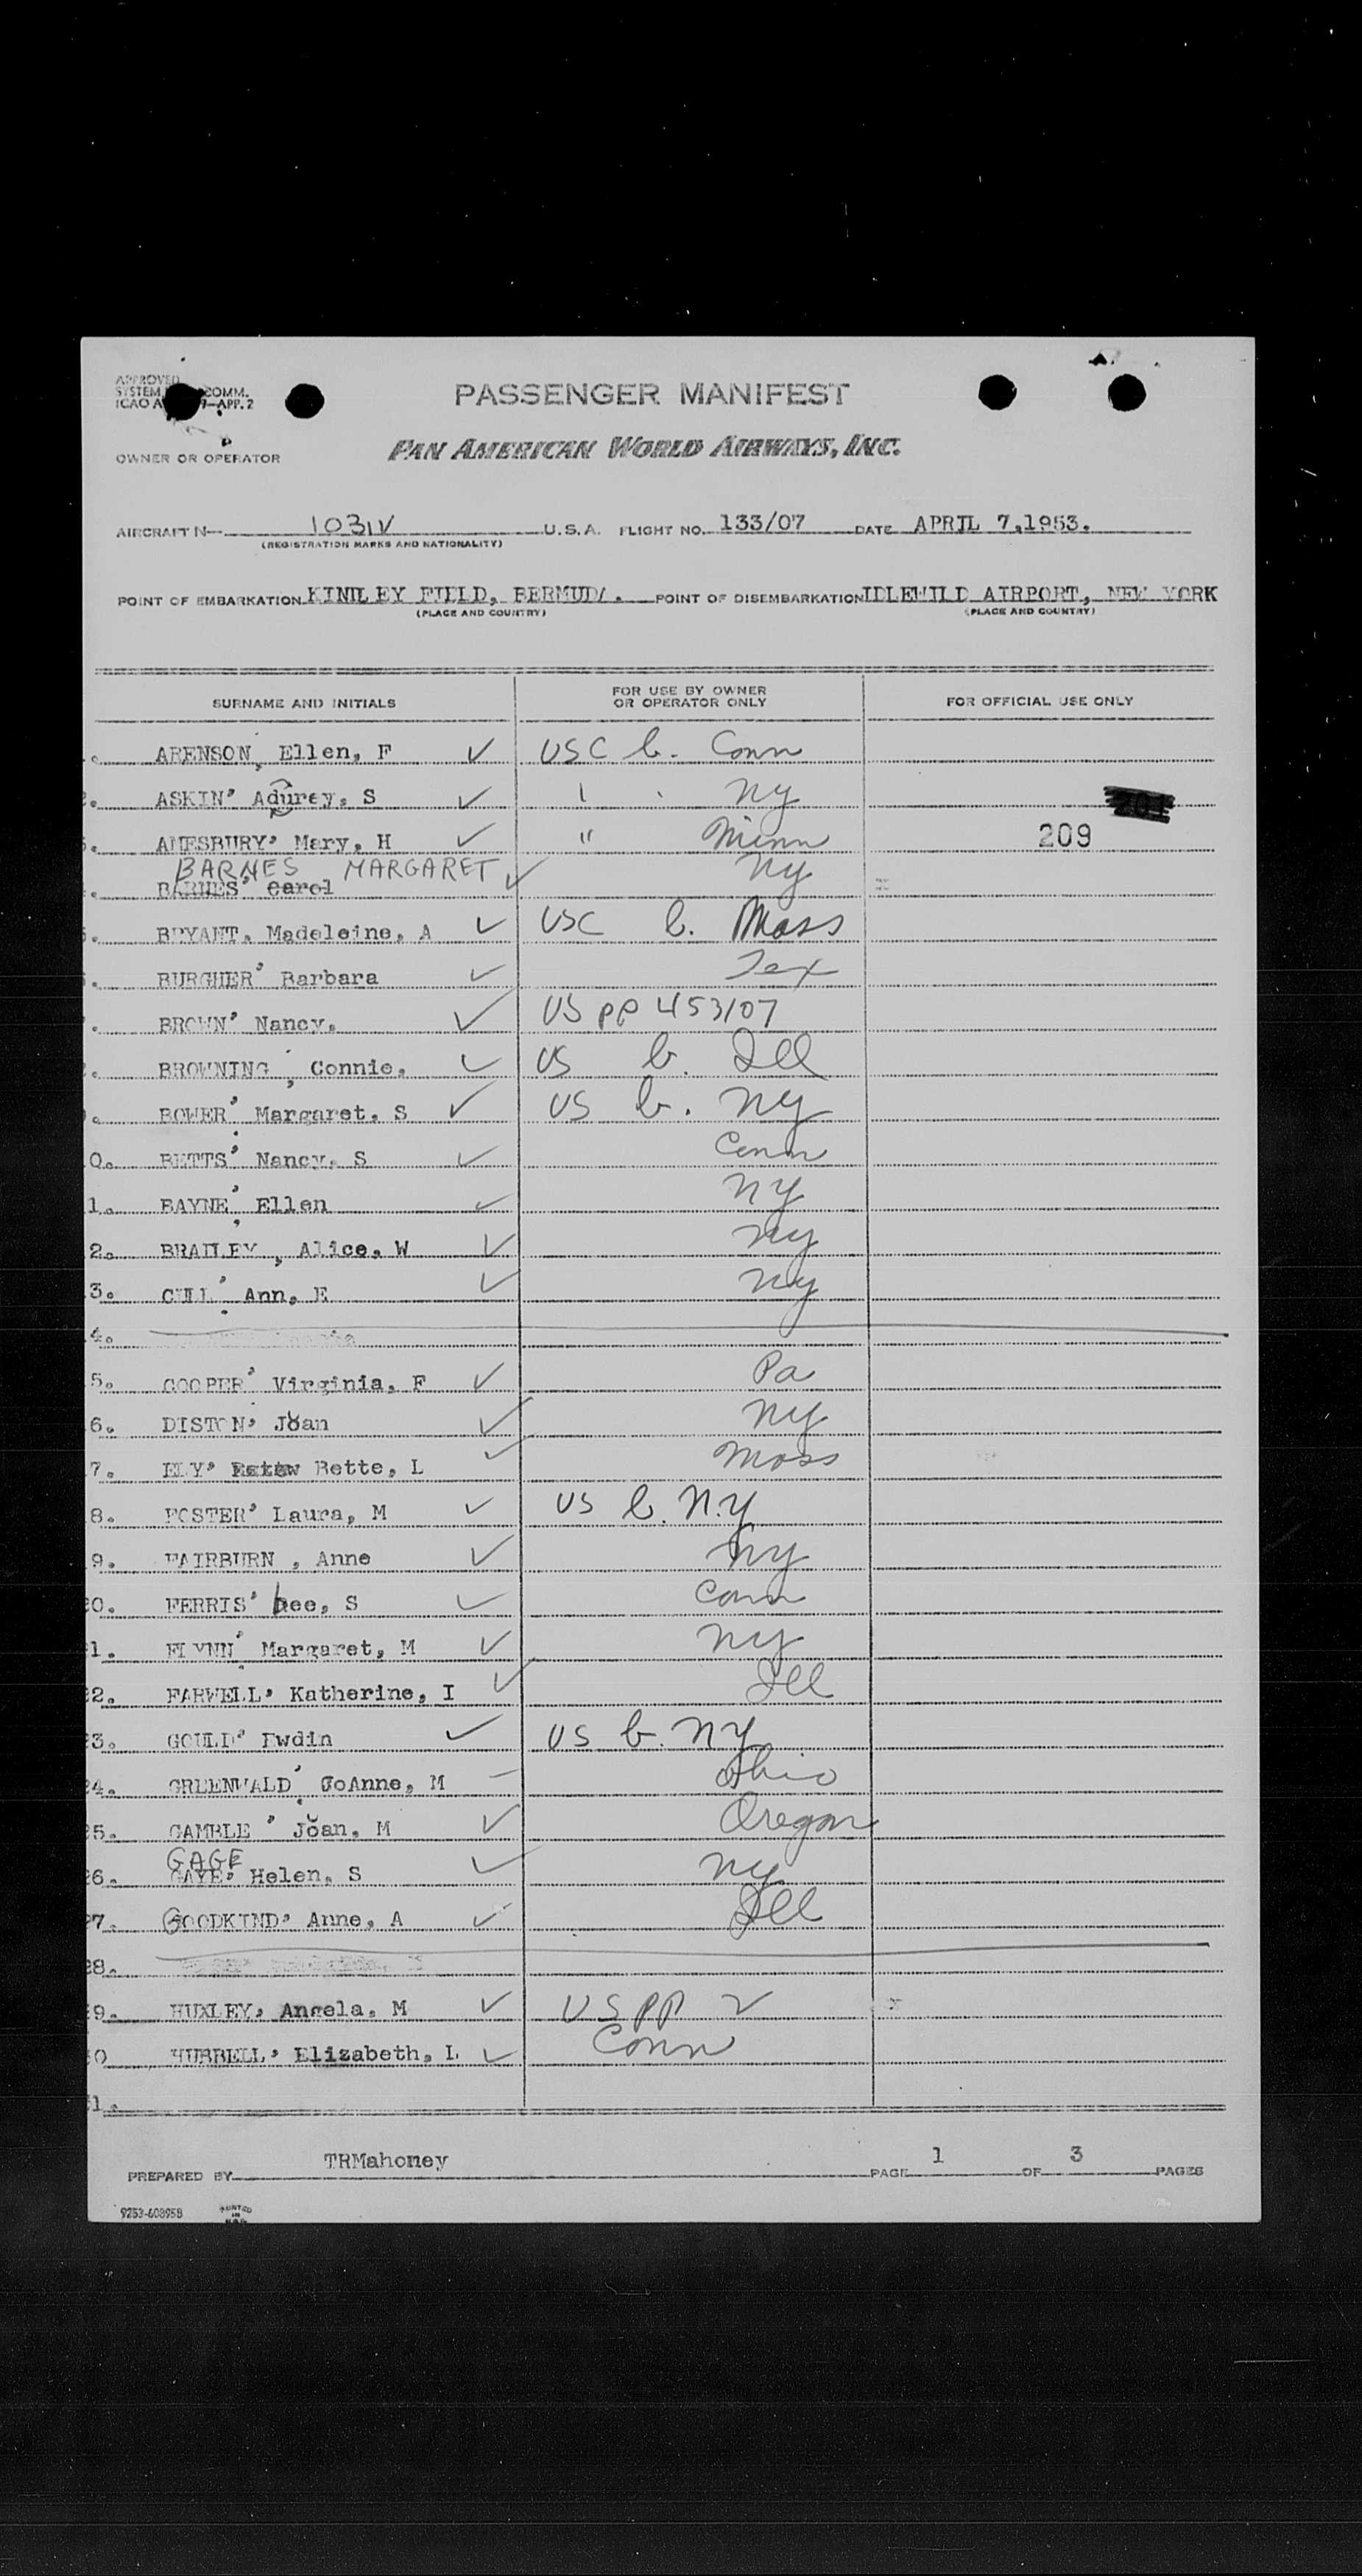 APPROVED
SYSTEM COMM.
ICAO A 9—APP. 2
PASSENGER MANIFEST
OWNER OR OPERATOR
PAN AMERICAN WORLD AIRWAYS, INC.
AIRCRAFT N— 1031V U.S.A. FLIGHT NO. 133/07 DATE APRIL 7,1953.
(REGISTRATION MARKS AND NATIONALITY)
POINT OF EMBARKATION KINDLEY FIELD, BERMUDA. POINT OF DISEMBARKATION IDLEWILD AIRPORT, NEW YORK
(PLACE AND COUNTRY) (PLACE AND COUNTRY)
SURNAME AND INITIALS FOR USE BY OWNER OR OPERATOR ONLY FOR OFFICIAL USE ONLY
ARENSON, Ellen, F ✓ USC b. Conn
ASKIN' Adurey, S ✓ Ny
AMESBURY' Mary, H ✓ " Minn 209
BARNES MARGARET ✓ Ny
BARNES' Carol
BRYANT, Madeleine, A ✓ USC b. Mass
BURGHER' Barbara ✓ Tex
BROWN' Nancy. ✓ US PP 453107
BROWNING , Connie. ✓ US b. Ill
BOWER' Margaret, S ✓ US b. Ny
0. BETTS' Nancy, S ✓ Conn
1. BAYNE' Ellen ✓ Ny
2. BRAILEY , Alice, W ✓ Ny
3. CULL' Ann, E ✓ Ny
4.
5. COOPER' Virginia, F ✓ Pa
6. DISTON' Joan ✓ Ny
7. ELY' Bette, L ✓ Mass
8. FOSTER' Laura, M ✓ US b. N.Y
9. FAIRBURN , Anne ✓ Ny
0. FERRIS' bee, S ✓ Conn
1. FLYNN' Margaret, M ✓ Ny
2. FARWELL' Katherine, I ✓ Ill
3. GOULD' Ewdin ✓ US b. NY
4. GREENWALD' JoAnne, M – Ohio
5. GAMBLE ' Joan, M ✓ Oregon
GAGE
6. GAYE' Helen, S ✓ Ny
7. GOODKIND' Anne, A ✓ Ill
28.
9. HUXLEY' Angela, M ✓ US PP ✓
0 HUBBELL' Elizabeth, L ✓ Conn
1.
PREPARED BY TRMahoney PAGE 1 OF 3 PAGES
9253-608958 PRINTED IN U.S.A.